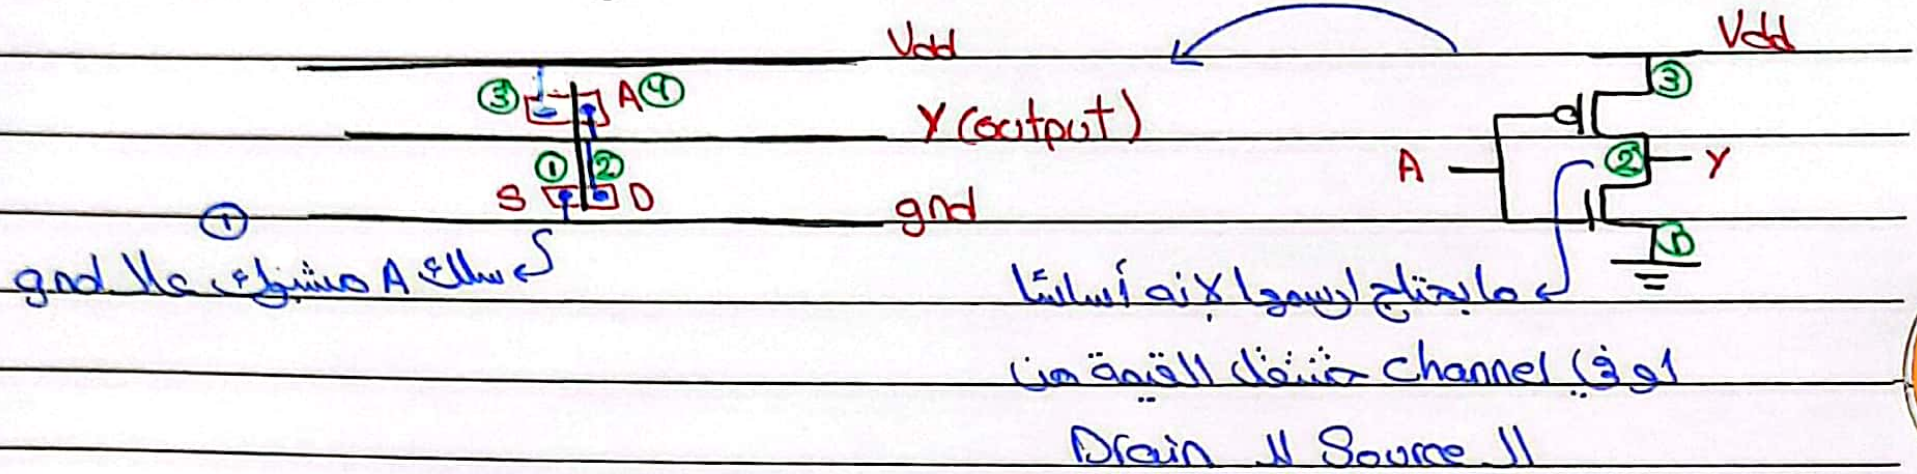 Vdd
③ A ④
Y (output)
① ②
S D
gnd
①
سلك A مشبوك عالـ gnd
Vdd
③
A ② Y
①
ما بحتاج ارسمها لإنه أساسًا
لو في channel حتنقل القيمة من
الـ Source للـ Drain